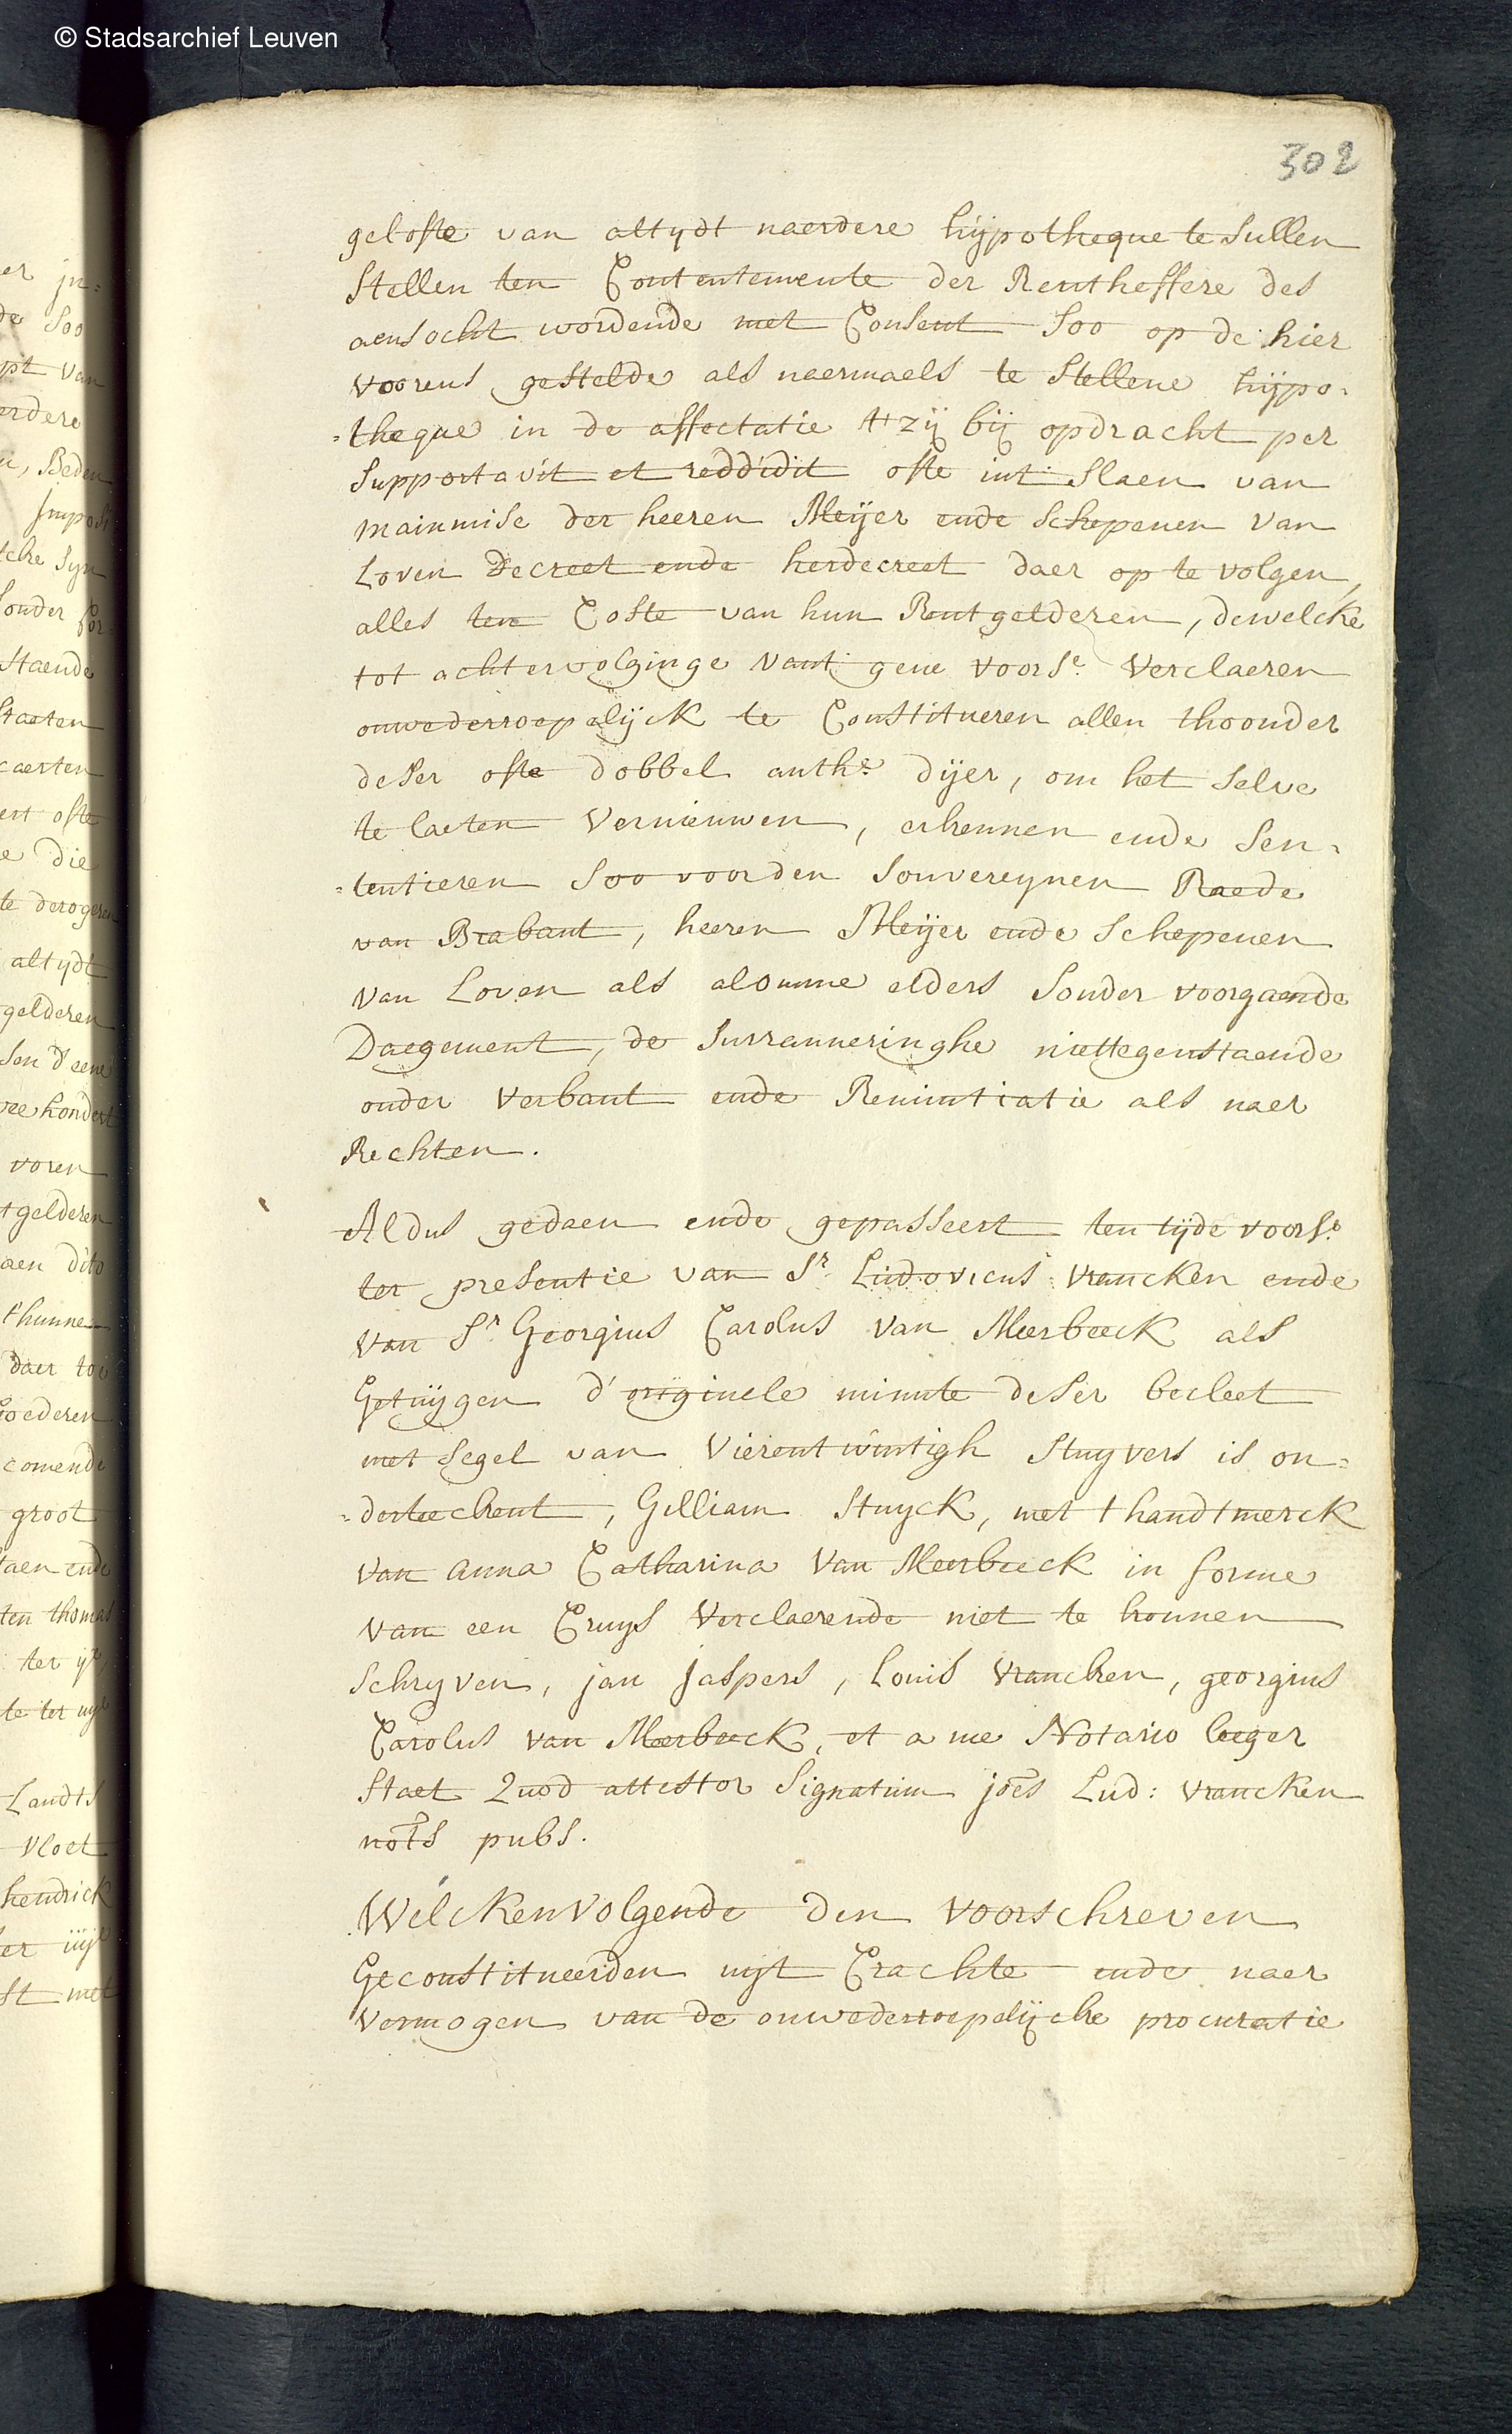 © Stadsarchief Leuven
302
gelofte van altydt naerdere hijpotheque te sullen
stellen ten Contentemente der Rentheffere des
aensocht wordende met Consent soo op de hier
voorens gestelde als naermaels te stellene hijpo=
=theque in de affectatie t'zij bij opdracht per
supportavit et reddidit ofte int slaen van
mainmise der heeren Meijer ende schepenen van
Loven Decreet ende herdecreet daer op te volgen,
alles ten Coste van hun Rentgelderen, dewelcke
tot achtervolginge vant gene voorse. verclaeren
onwederroepelijck te Constitueren allen thoonder
deser ofte dobbel auth. dijer, om het selve
te laeten vernieuwen, erkennen ende sen=
=tentieren soo voor den souvereynen Raede
van Brabant, heeren Meijer ende schepenen
van Loven als alomme elders sonder voorgaende
Daegement, de surranneringhe niettegenstaende
onder verbant ende Renuntiatie als naer
Rechten.
Aldus gedaen ende gepasseert ten tijde voors.
ter presentie van Sr. Ludovicus vrancken ende
van Sr. Georgius Carolus van Meerbeeck als
Getuijgen d'originele minute deser becleet
met segel van vierentwintigh stuyvers is on=
=derteekent, Gilliam Stuyck, met t handtmerck
van anna Catharina van Meerbeeck in forme
van een Cruys verclaerende niet te konnen
schryven, jan jaspers, Louis vrancken, georgius
Carolus van Meerbeeck, et a me Notario leeger
staet Quod attestor signatum joes Lud: vrancken
nots pubs.
Welckenvolgende den voorschreven
Geconstitueerden uijt Crachte ende naer
vermogen van de onwederroepelijcke procuratie